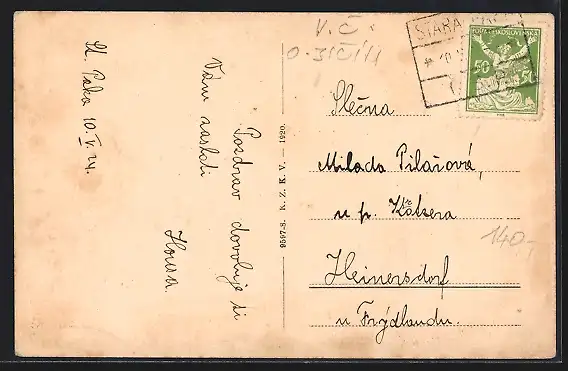 St. Paka 10.V.24.
Pozdrav dovoluje si
Vám zaslati
Housa.
9597-S. N. Z. K. V. — 1920.
V.Č.
STARÁ
POŠTA ČESKOSLOVENSKÁ
50 50
Slečna
Milada Pilařová,
u p. Kölzera
Heinersdorf
u Frýdlandu.
140,-